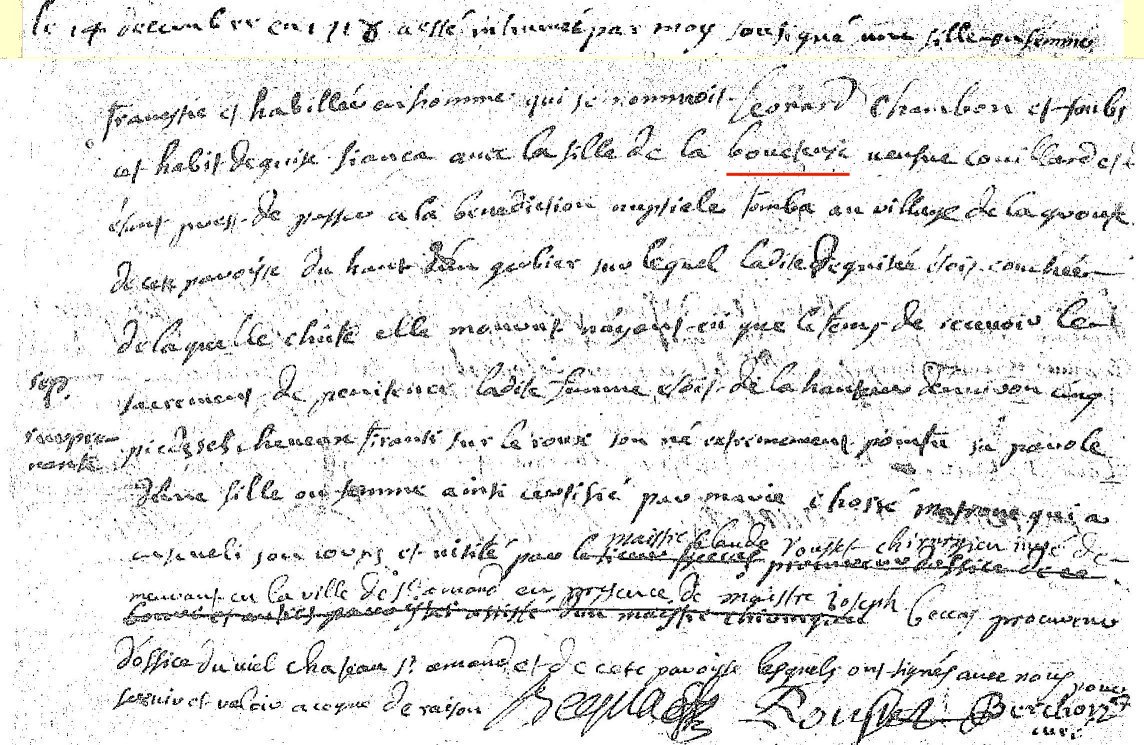 le 14 decembre en 1718 a esté inhumée par moy sousigné une fille ou femme
travestie et habillée en homme qui se nommoit Leonard Chambon et soubs
cet habit deguisé fiança avec la fille de la veufve Couillard et
étant prest de passer a la benediction nuptiele tomba au village de la
de cete paroisse du haut d'un gerbier sur lequel ladite deguisée étoit couchée
de laquelle chûte elle mourut n'ayant eü que le tems de recevoir le
sep.
sacrement de penitence ladite femme estoit de la hauteur d'environ cinq
surpre-
nante
pieds cheveux tirants sur le roux son né extremement pointu sa parole
d'une fille ou femme ainsi certifié par marie matrone qui a
enseveli son corps et visité par maistre Rousset chirurgien juré de-
meurant en la ville de St amand en presence de maistre Joseph procureur
d'office du viel chateau St amand et de cete paroisse lesquels ont signés avec nous pour
servir et valoir a ceque de raison
Rousset Berchon
curé